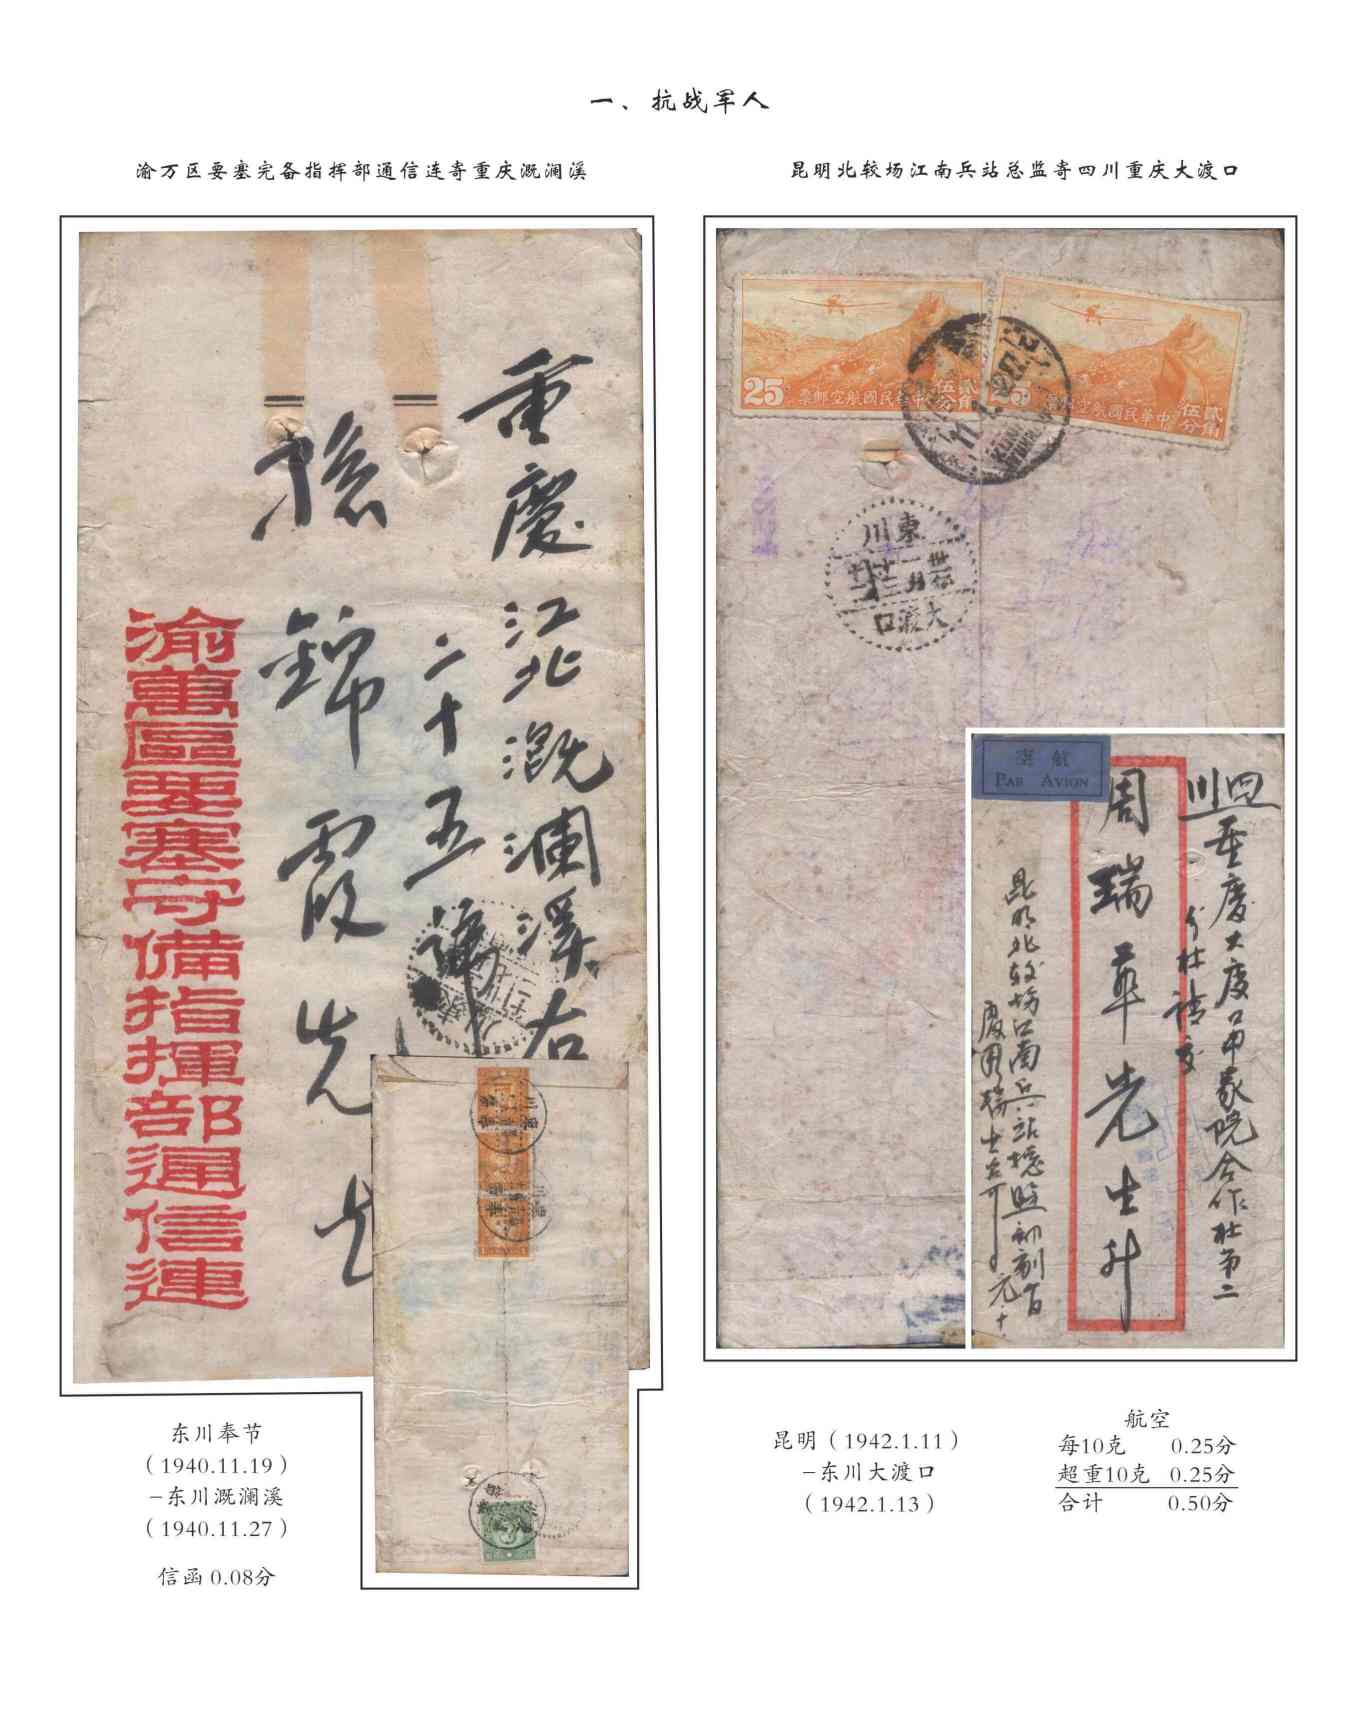 一、抗战军人
渝万区要塞完备指挥部通信连寄重庆溉澜溪
重慶江北溉澜溪右
二十五號
孫錦霞先生
渝萬區要塞守備指揮部通信連
东川奉节
（1940.11.19）
–东川溉澜溪
（1940.11.27）
信函 0.08分
昆明北较场江南兵站总监寄四川重庆大渡口
25
中華民國航空郵票
貳角
伍分
中華民國航空郵票
貳角
伍分
東川
大渡口
航空
PAR AVION
四川重慶大度口
合作社第二
分社請交
周瑞華先生升
昆明北較場江南兵站總監
昆明（1942.1.11）
–东川大渡口
（1942.1.13）
航空
每10克 0.25分
超重10克 0.25分
合计 0.50分